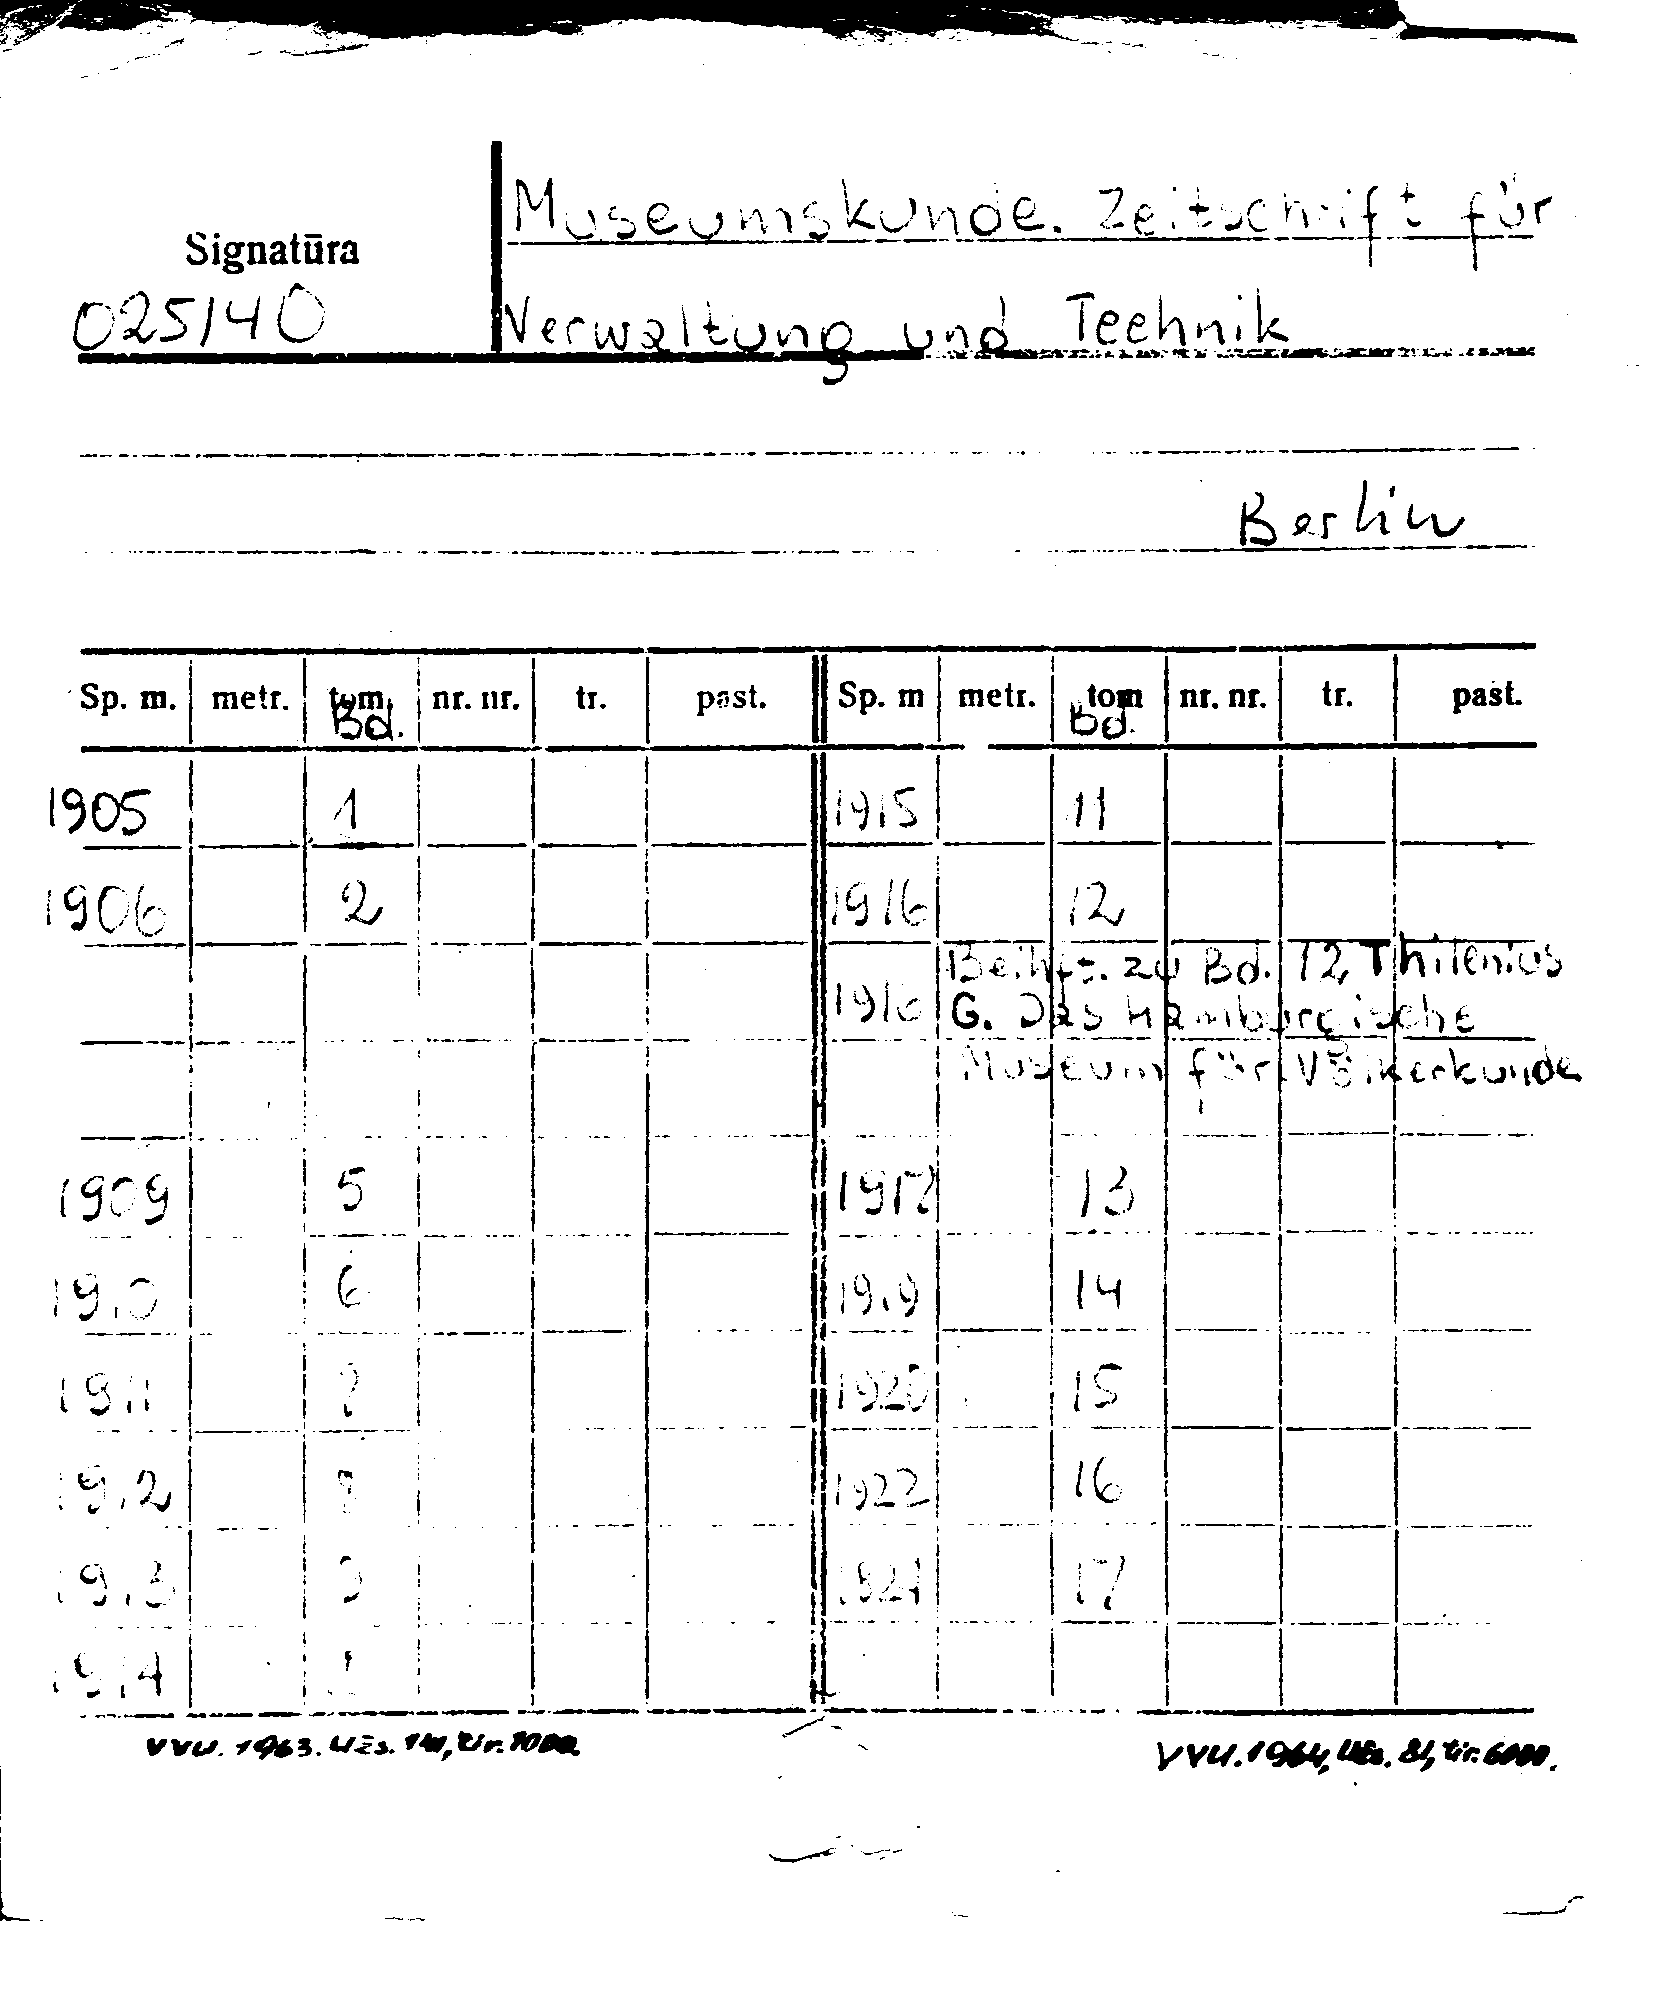 Museumskunde. Zeitschrift für
Signatūra
025/40
Verwaltung und Technik
Berlin
Sp. m. metr. tom. nr. nr. tr. past. Sp. m metr. tom nr. nr. tr. past.
Bd. Bd.
1905 1 1915 11
1906 2 1916 12
1916 Beiheft. zu Bd. 12 Thilenius
G. Das Hamburgische
Museum für Völkerkunde
1909 5 1917 13
1910 6 1919 14
1911 7 1920 15
1912 1922 16
1913 1924 17
1914
VVU. 1963. Užs. tir. 1000
VVU. 1964, Užs. 81, tir. 6000.